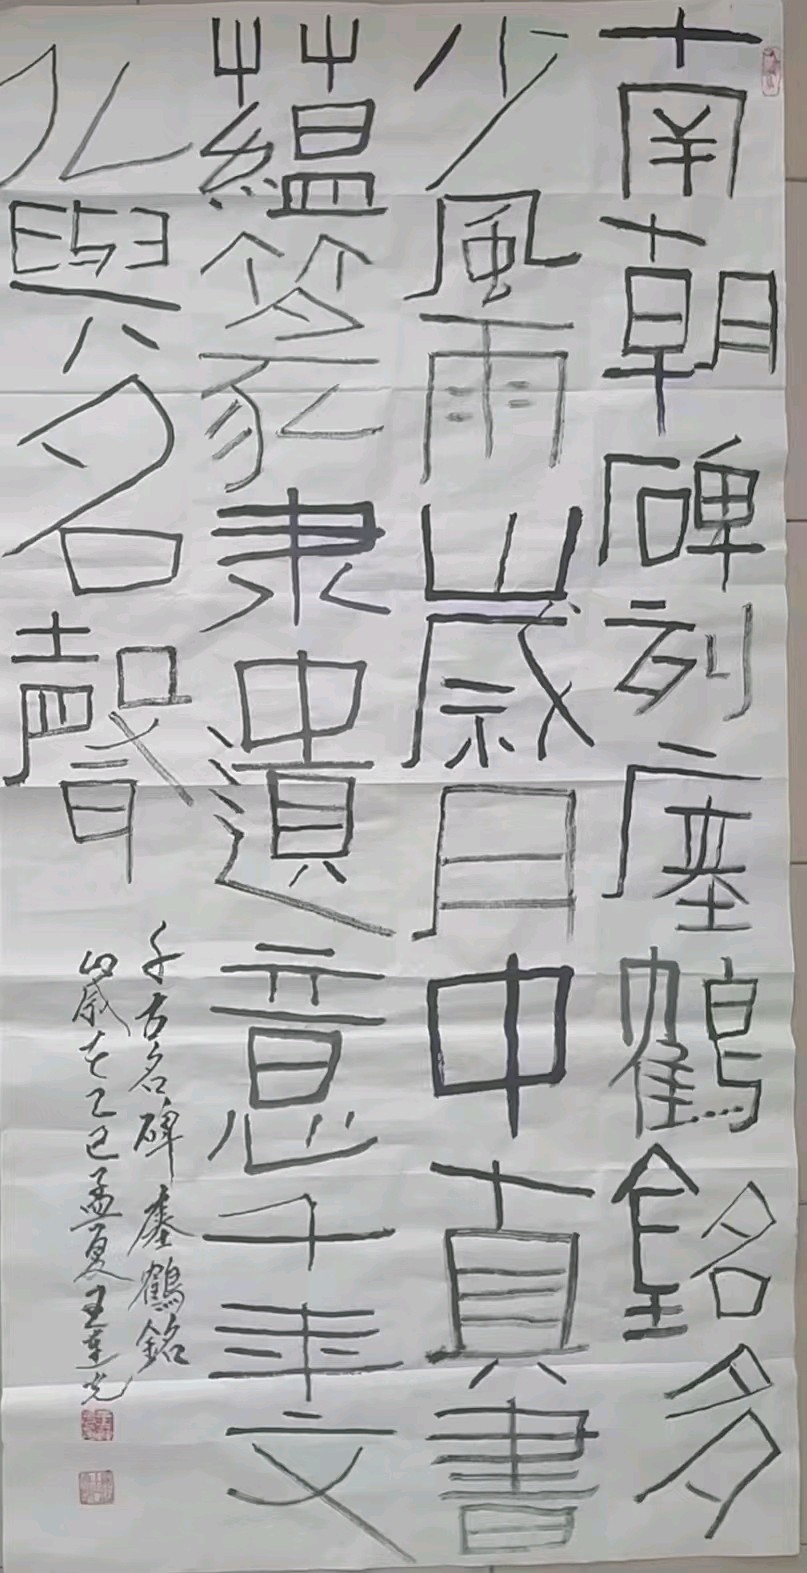 南朝碑刻瘞鶴銘多
少風雨嵗月中真書
蘊篆隶遺意千年文
化與名聲
千古名碑瘞鶴銘
嵗在乙巳孟夏王連光